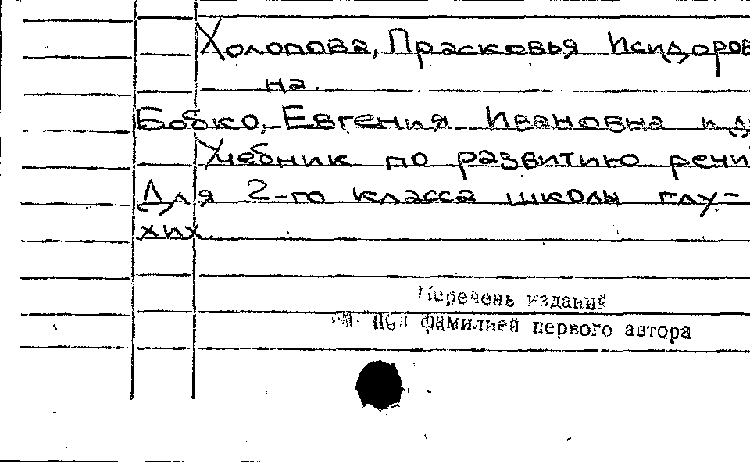 Холопова, Прасковья Исидоров
на.
Бобко, Евгения Ивановна и д
Учебник по развитию речи
Для 2-го класса школы глу-
хих
Перечень изданий
под фамилией первого автора